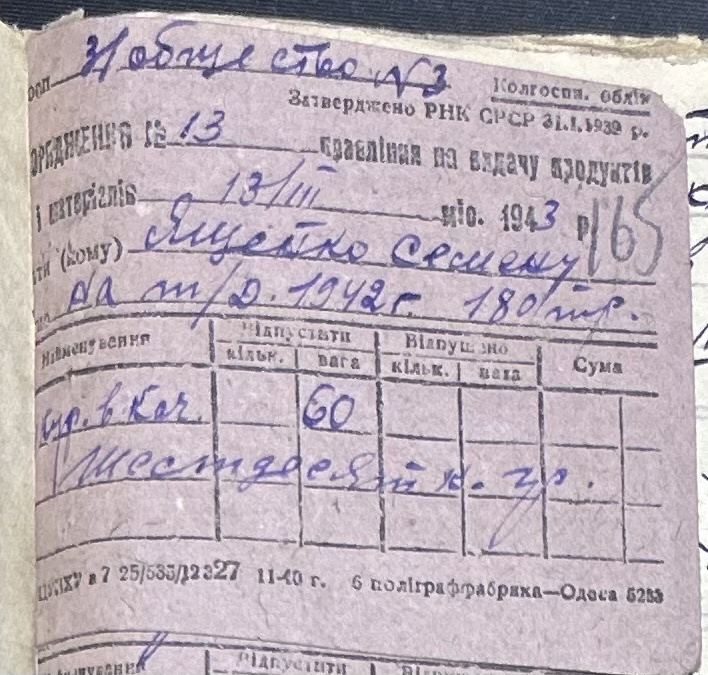 осп. З/ общество №3
Колгоспн. облік
Затверджено РНК СРСР 31.I.1939 р.
ОРЯДЖЕННЯ № 13 правління на видачу продуктів
і матеріялів 13/III міс. 1943 р. 165
ти (кому) Ященко Семену
На т/д. 1942 г. 180 тр.
Найменування Відпустити Відпущено Сума
кільк. вага кільк. вага
в Кач. 60
Шестдесят к. гр.
25/535/12327 11-40 г. 6 поліграффабрика—Одеса 5253
Відпустити